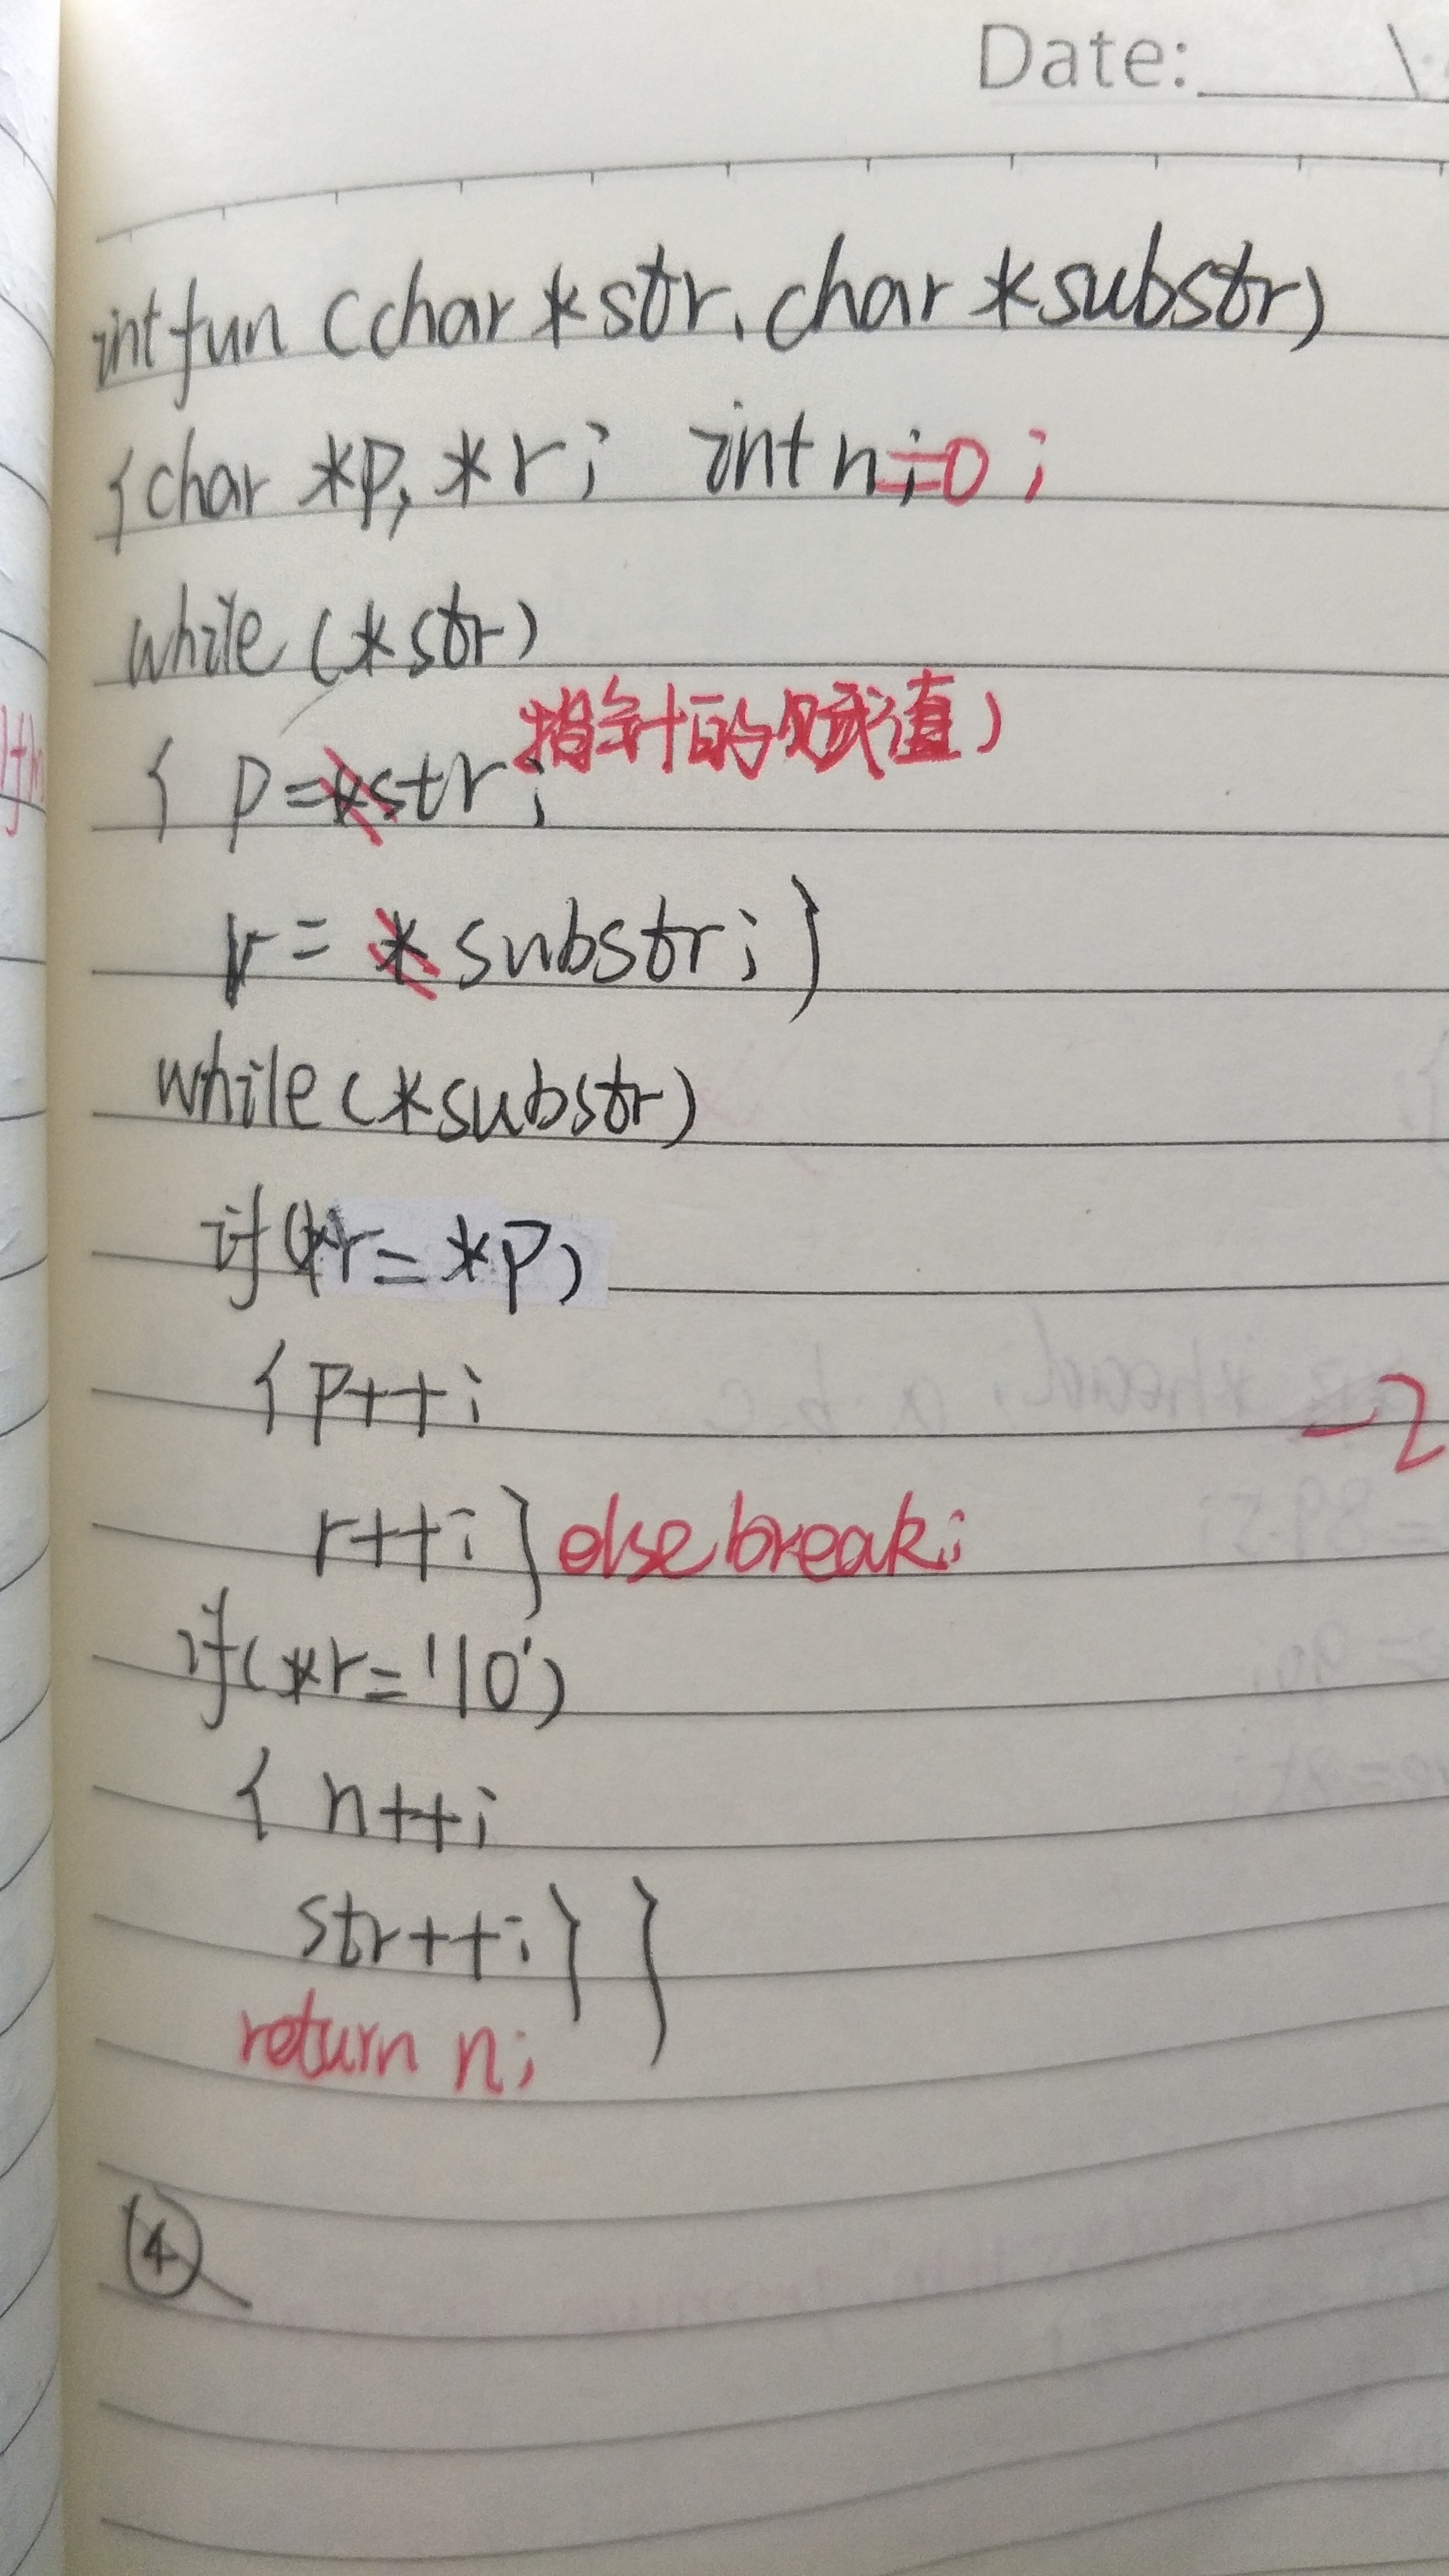 Date:
int fun (char *str, char *substr)
{char *p, *r; int n;=0;
while (*str)
指针的赋值)
{ p=*str;
r= *substr; }
while(*substr)
if(*r= *p)
{p++;
r++; } else break;
-2
if(*r='\0')
{ n++;
str++; } }
return n;
④